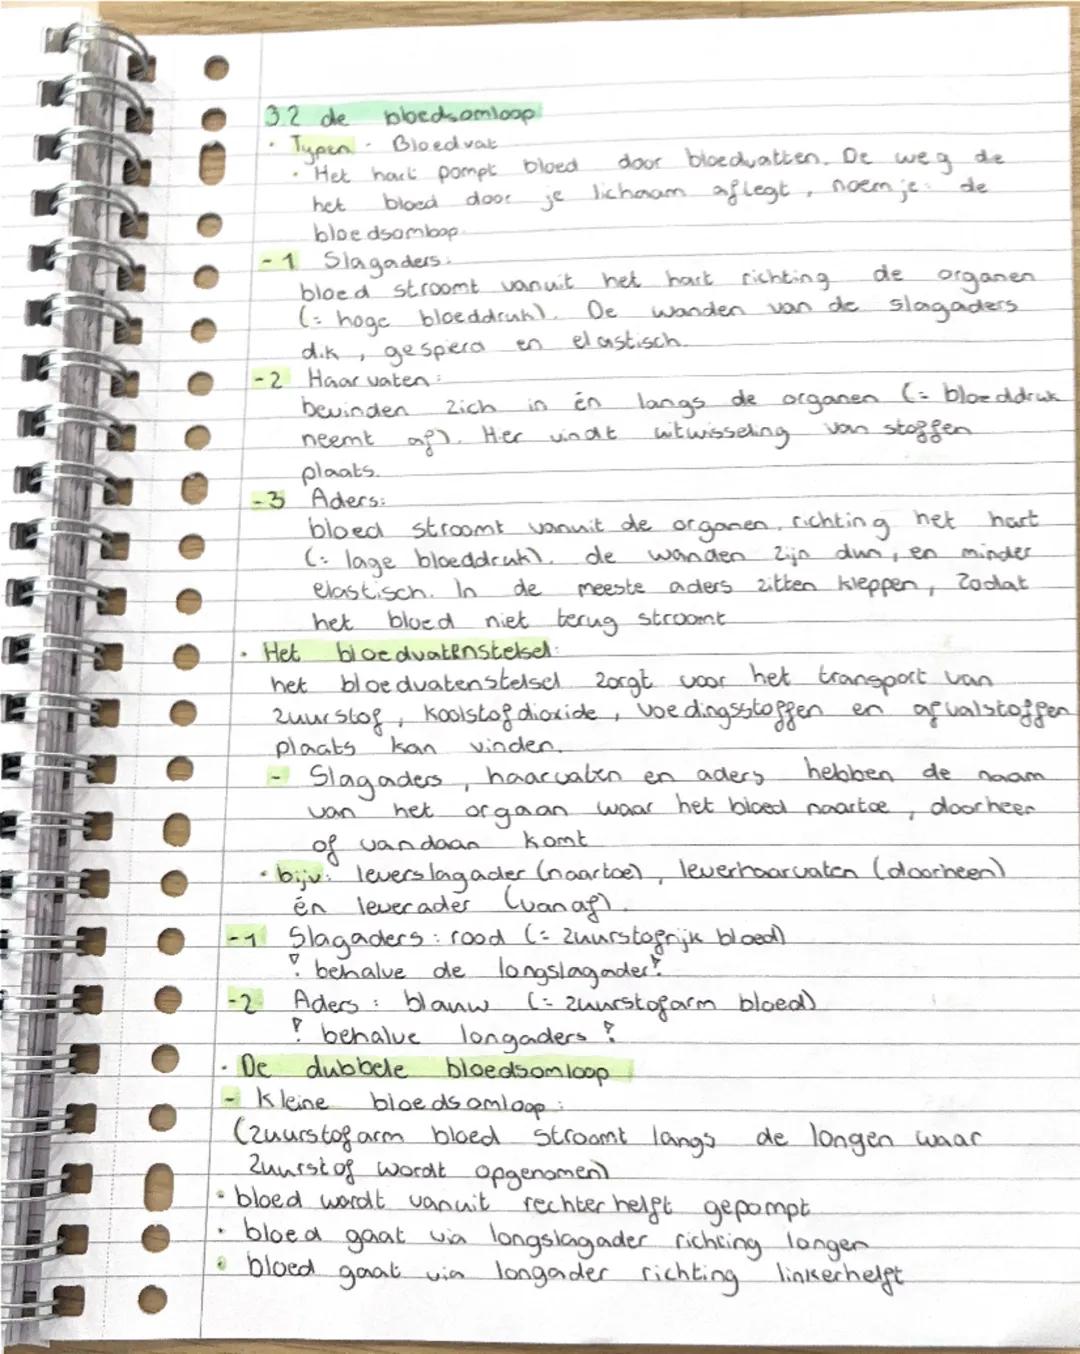 3.2 de bloedsomloop
• Typen - Bloedvat
• Het hart pompt bloed door bloedvatten. De weg de
het bloed door je lichaam aflegt, noem je: de
bloedsomloop.
-1 Slagaders:
bloed stroomt vanuit het hart richting de organen
(= hoge bloeddruk). De wanden van de slagaders
dik, gespierd en elastisch.
-2 Haarvaten:
bevinden zich in én langs de organen (= bloeddruk
neemt af). Hier vindt uitwisseling van stoffen
plaats.
-3 Aders:
bloed stroomt vanuit de organen richting het hart
(= lage bloeddruk). de wanden zijn dun, en minder
elastisch. In de meeste aders zitten kleppen, zodat
het bloed niet terug stroomt
• Het bloedvatenstelsel:
het bloedvatenstelsel zorgt voor het transport van
zuurstof, koolstofdioxide, voedingsstoffen en afvalstoffen
plaats kan vinden.
- Slagaders, haarvaten en aders hebben de naam
van het orgaan waar het bloed naartoe, doorheen
of vandaan komt
• bijv: leverslagader (naartoe), leverhaarvaten (doorheen)
én leverader (vanaf).
-1 Slagaders: rood (= zuurstofrijk bloed)
! behalve de longslagader!
-2 Aders: blauw (= zuurstofarm bloed)
! behalve longaders !
• De dubbele bloedsomloop
- Kleine bloedsomloop:
(zuurstofarm bloed stroomt langs de longen waar
zuurstof wordt opgenomen)
• bloed wordt vanuit rechter helft gepompt
• bloed gaat via longslagader richting longen
• bloed gaat via longader richting linkerhelft